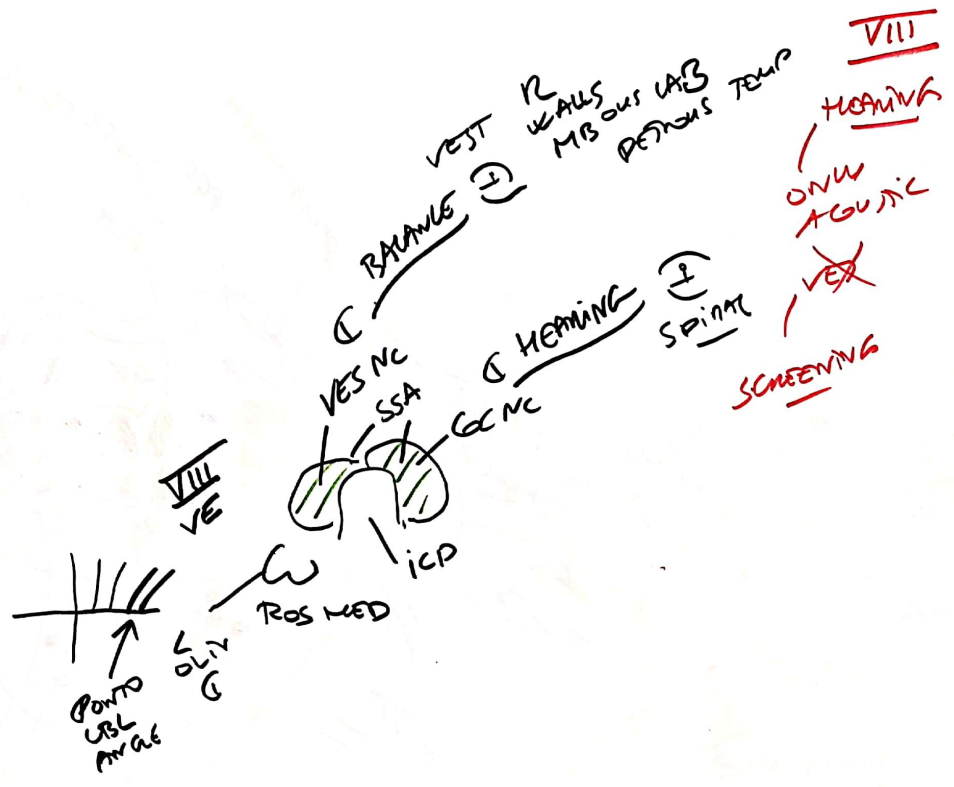 VIII
HEARING
ONLY
ACOUSTIC
VES
SCREENING
R
VEST WALLS
MBOUS LAB
PETROUS TEMP
BALANCE
HEARING
SPIRAL
VES NC
SSA
COC NC
VIII
VE
ICP
ROS MED
OLIV
PONTO
CBL
ANGLE